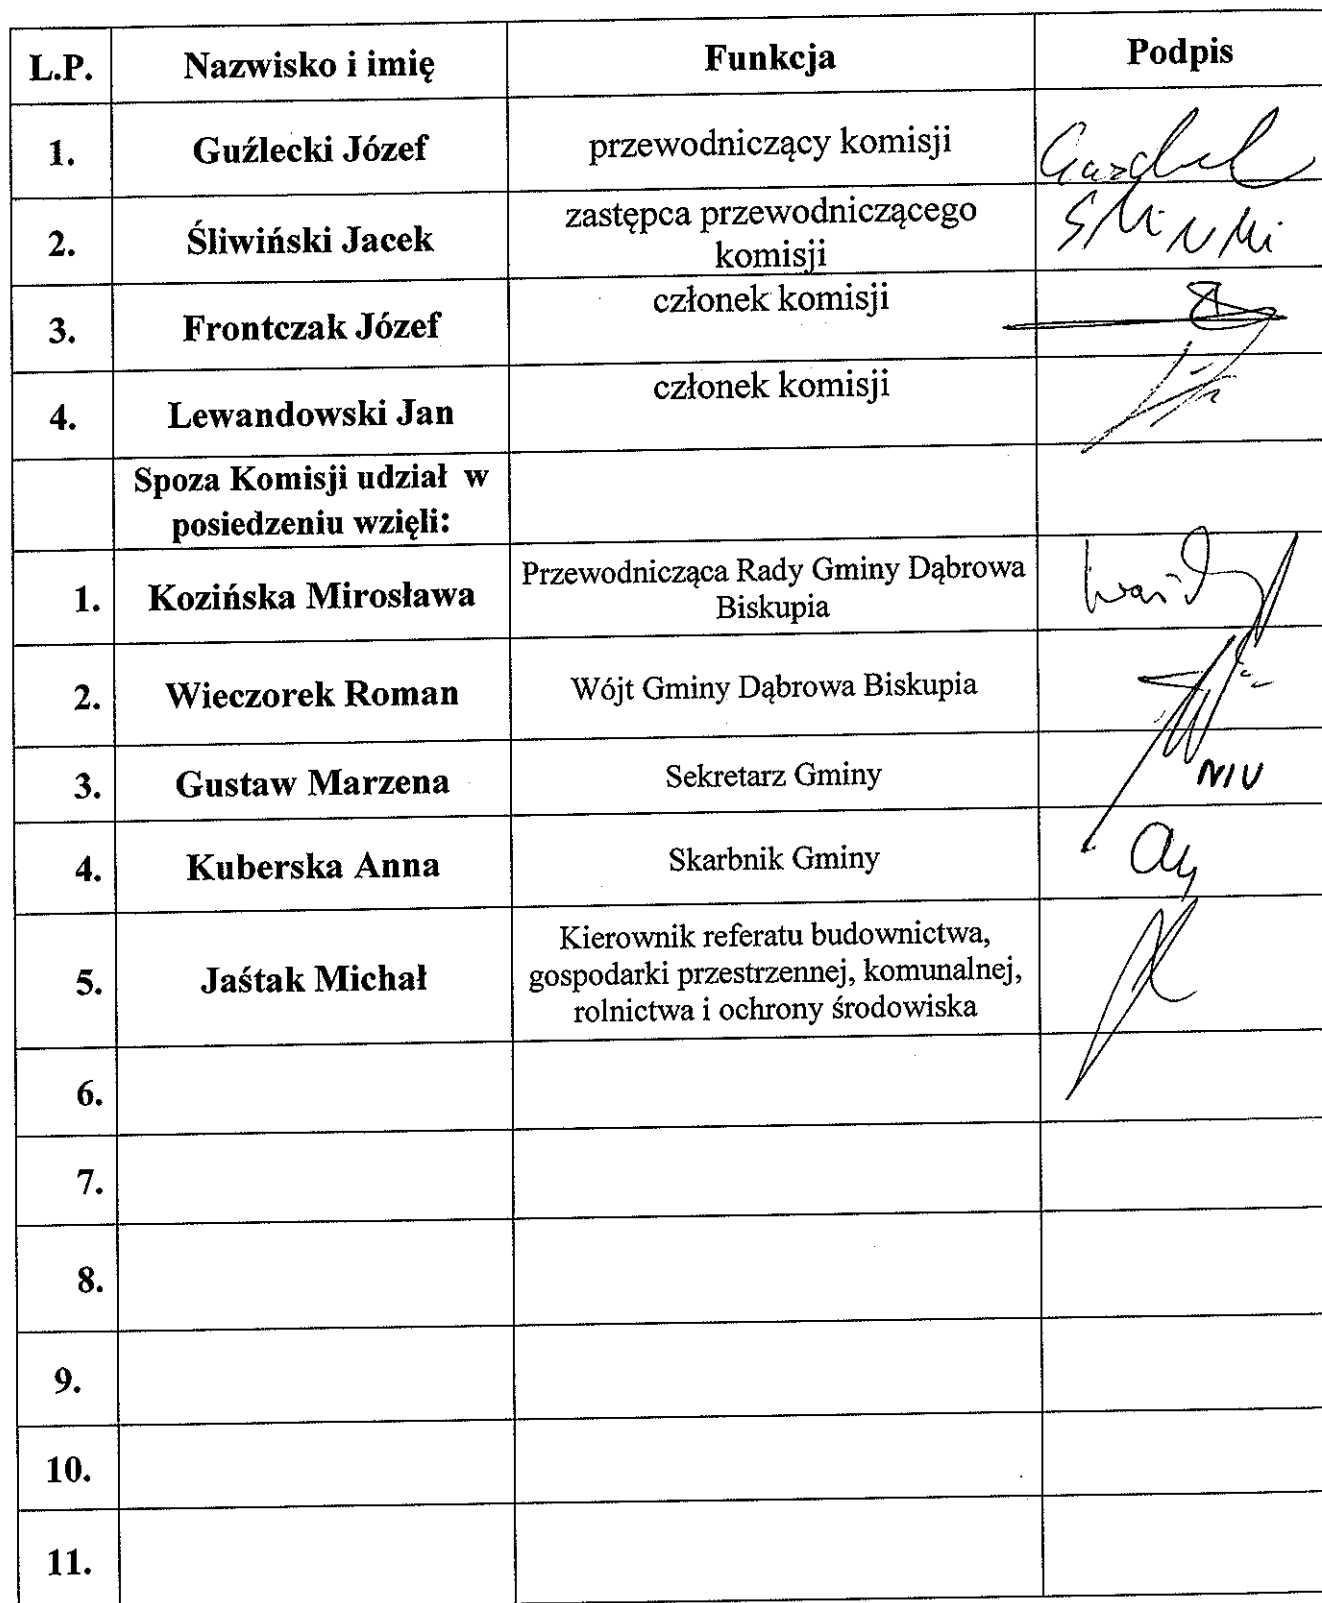 L.P. Nazwisko i imię Funkcja Podpis
1. Guźlecki Józef przewodniczący komisji
2. Śliwiński Jacek zastępca przewodniczącego
komisji
3. Frontczak Józef członek komisji
4. Lewandowski Jan członek komisji
Spoza Komisji udział w
posiedzeniu wzięli:
1. Kozińska Mirosława Przewodnicząca Rady Gminy Dąbrowa
Biskupia
2. Wieczorek Roman Wójt Gminy Dąbrowa Biskupia
3. Gustaw Marzena Sekretarz Gminy
4. Kuberska Anna Skarbnik Gminy
5. Jaśtak Michał Kierownik referatu budownictwa,
gospodarki przestrzennej, komunalnej,
rolnictwa i ochrony środowiska
6.
7.
8.
9.
10.
11.